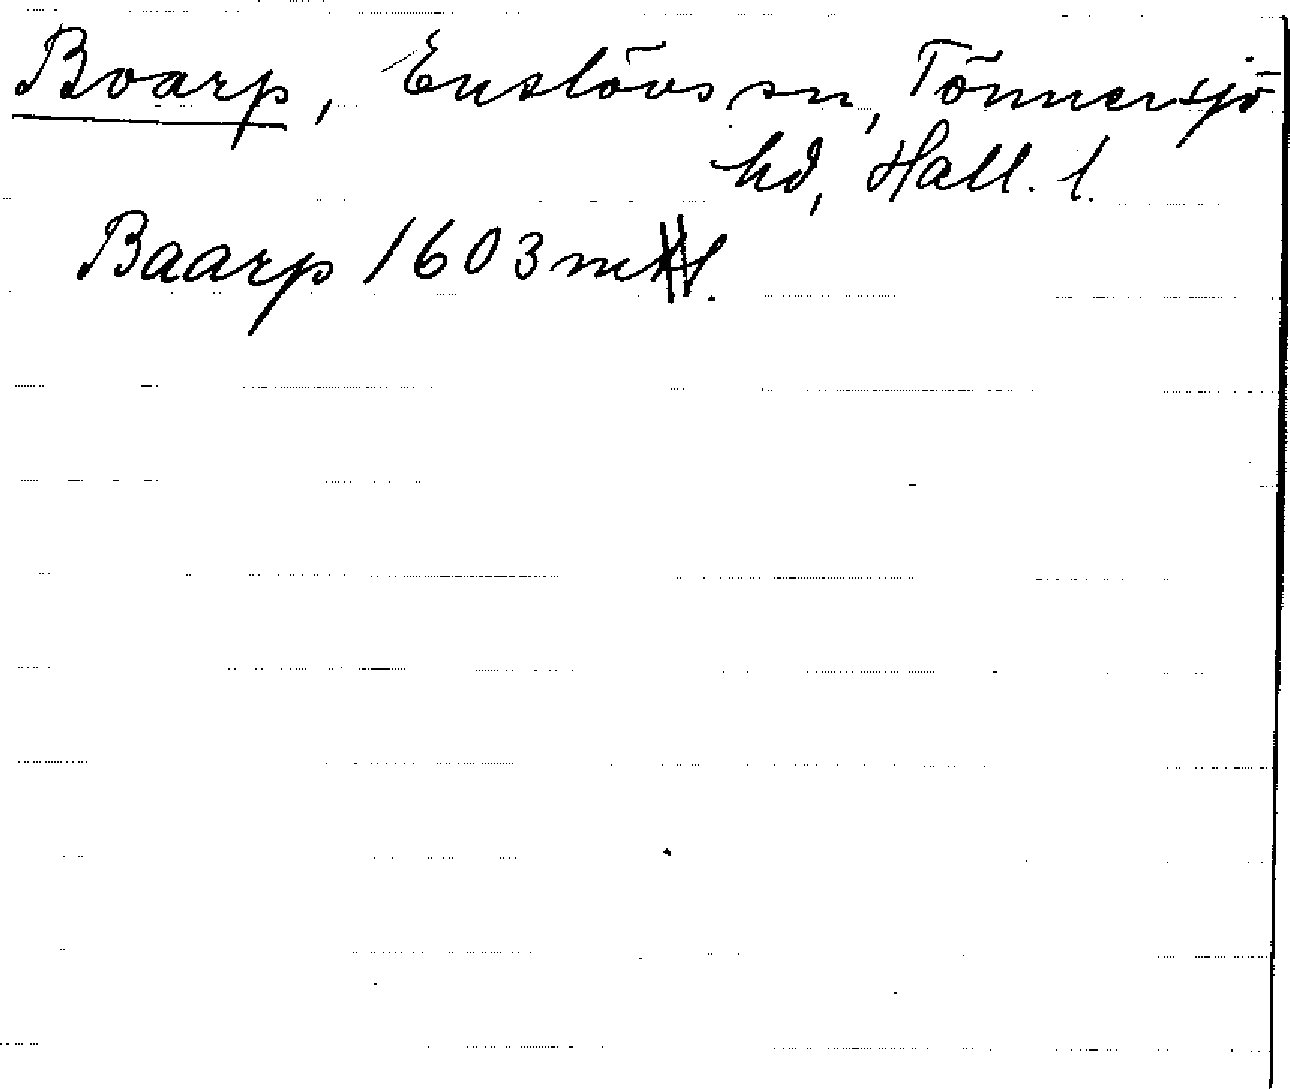 Boarp, Enslövs sn, Tönnersjö
hd, Hall. l.
Baarp 1603